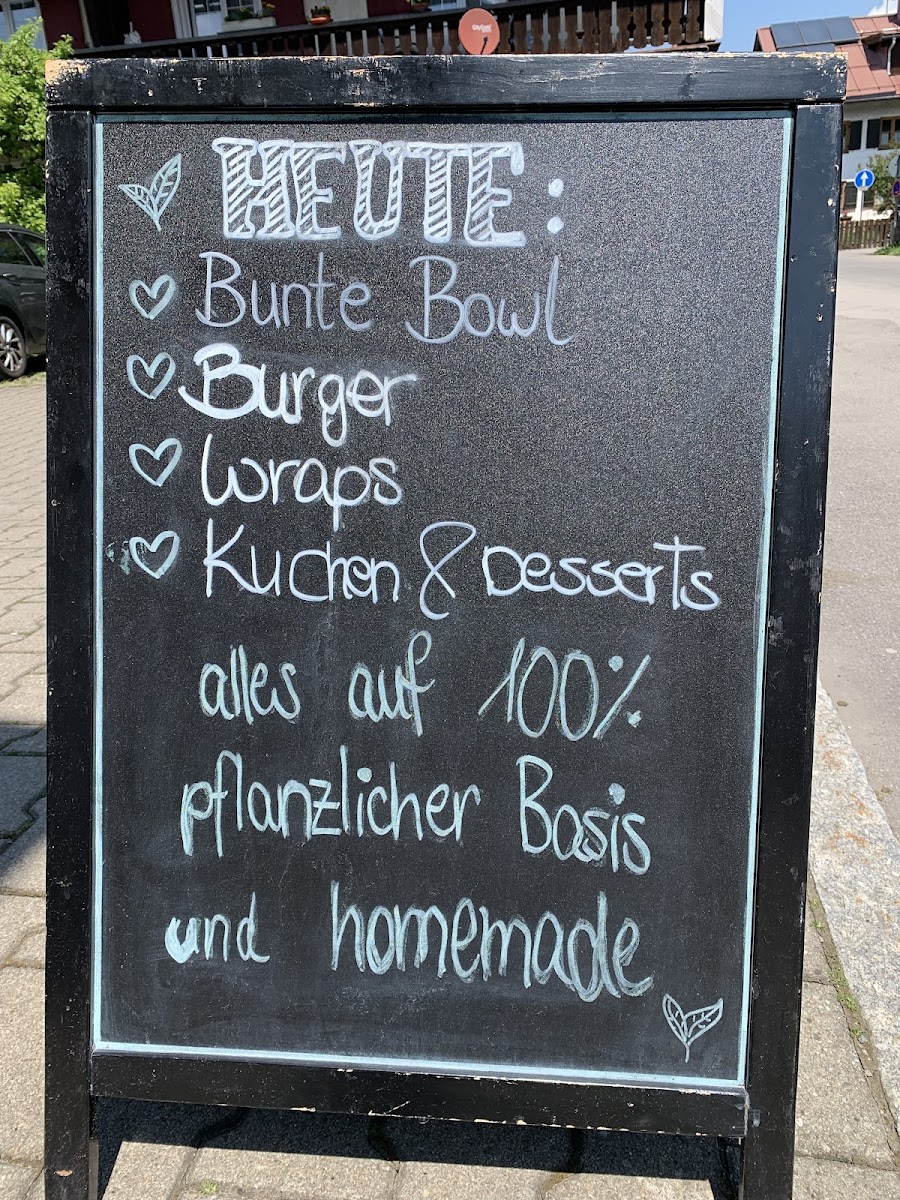 HEUTE:
Bunte Bowl
Burger
Wraps
Kuchen & Desserts
alles auf 100%
pflanzlicher Basis
und homemade